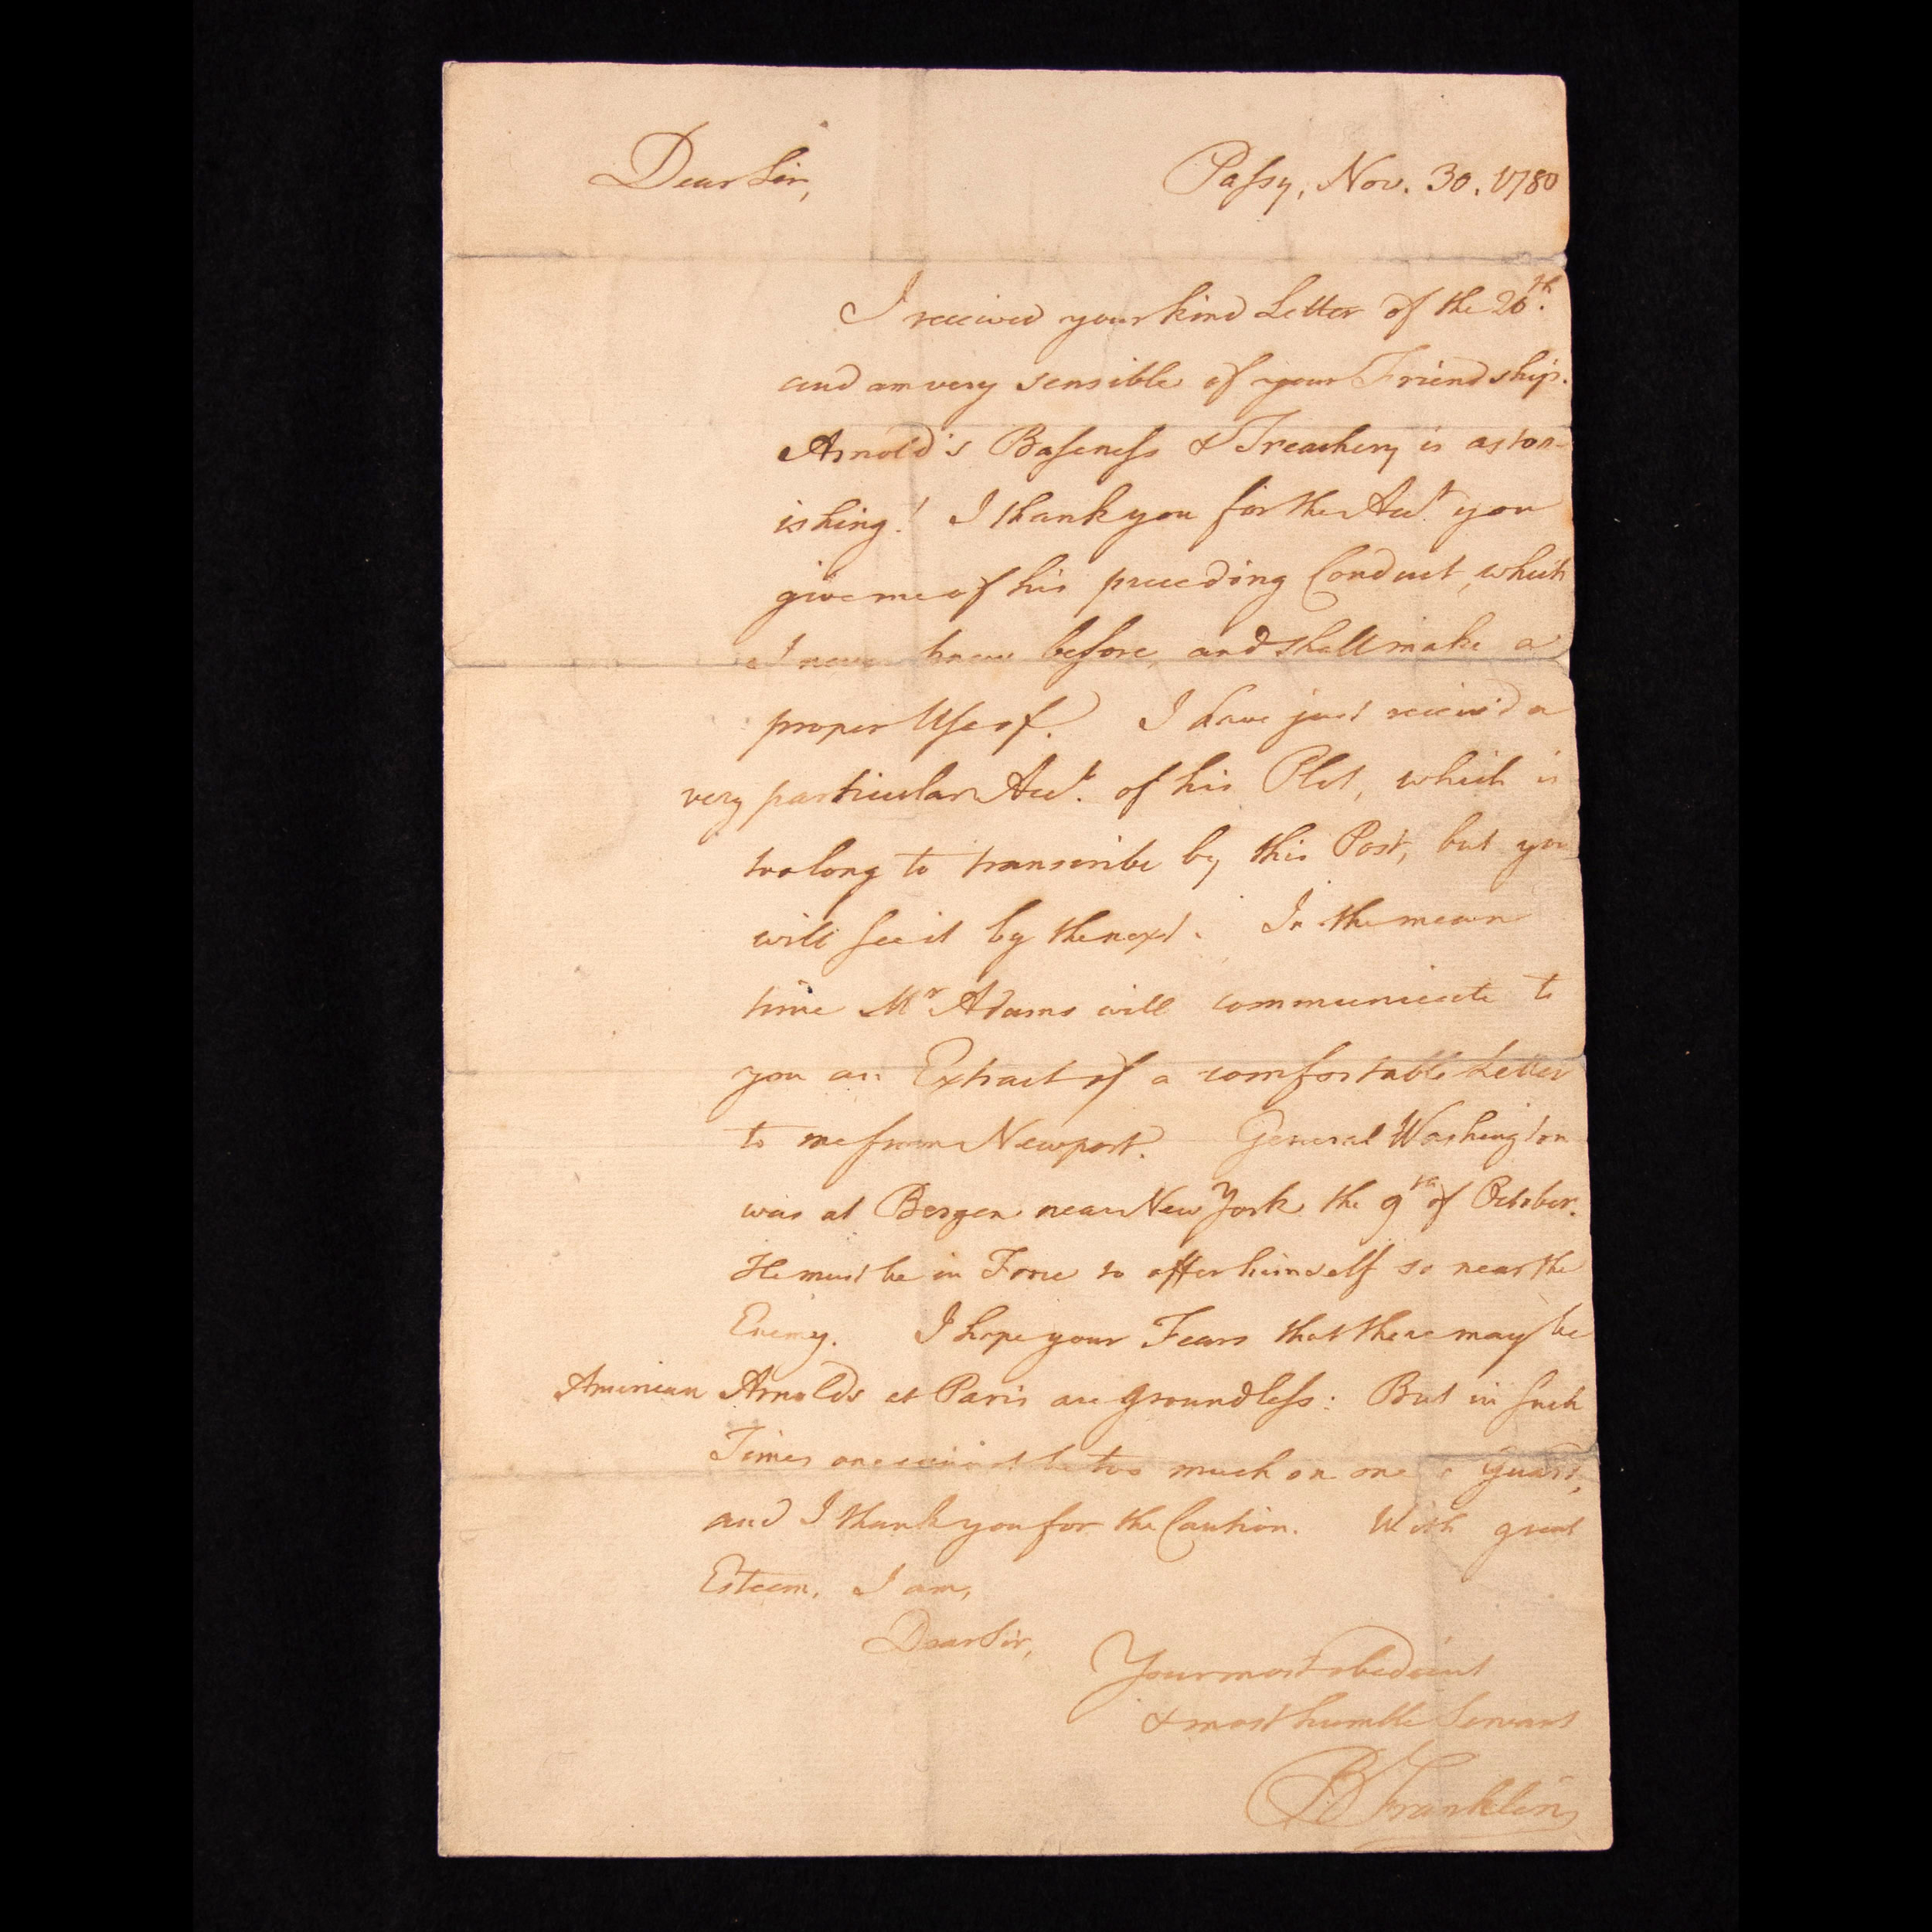 Dear Sir, Passy, Nov. 30. 1780
I received your kind Letter of the 26th.
and am very sensible of your Friendship.
Arnold's Baseness & Treachery is aston-
ishing! I thank you for the Acct. you
give me of his preceeding Conduct, which
I never knew before, and shall make a
proper Use of. I have just receiv'd a
very particular Acct. of his Plot, which is
too long to transcribe by this Post, but you
will see it by the next. In the mean
time Mr Adams will communicate to
you an Extract of a comfortable Letter
to me from Newport. General Washington
was at Bergen near New York the 9th of October.
He must be in Force to offer himself so near the
Enemy. I hope your Fears that there may be
American Arnolds at Paris are groundless: But in such
Times one cannot be too much on one's Guard,
and I thank you for the Caution. With great
Esteem, I am,
Dear Sir,
Your most obedient
& most humble Servant
B Franklin